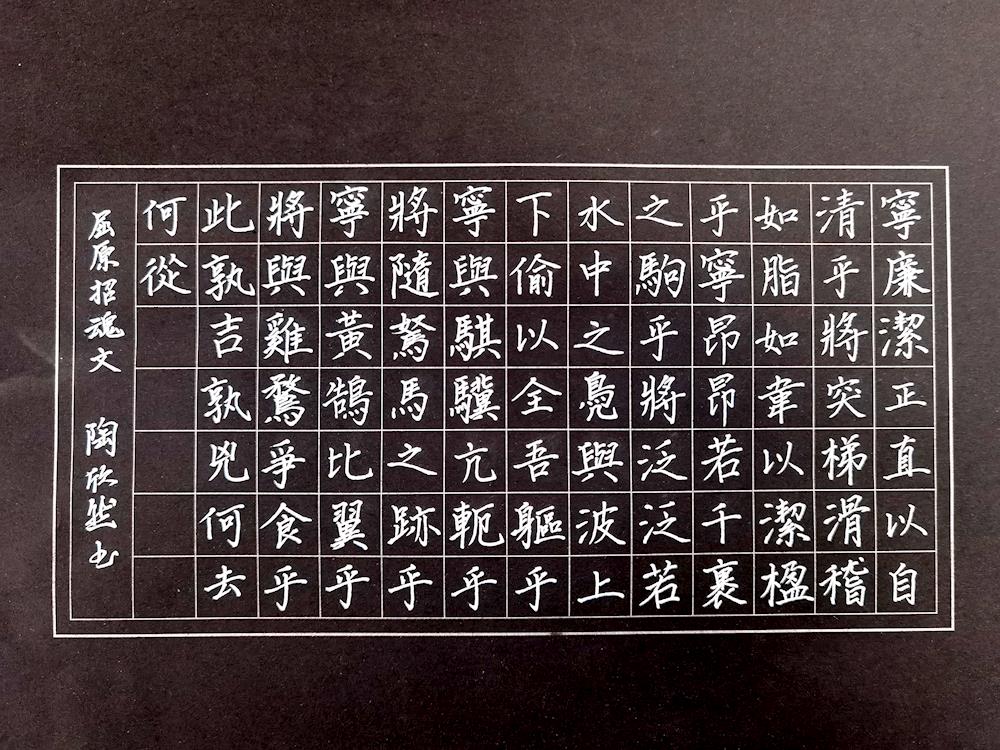 寧廉潔正直以自
清乎將突梯滑稽
如脂如韋以潔楹
乎寧昂昂若千裏
之駒乎將泛泛若
水中之鳧與波上
下偷以全吾軀乎
寧與騏驥亢軛乎
將隨駑馬之跡乎
寧與黃鵠比翼乎
將與雞鶩爭食乎
此孰吉孰兇何去
何從
屈原招魂文 陶欣然书